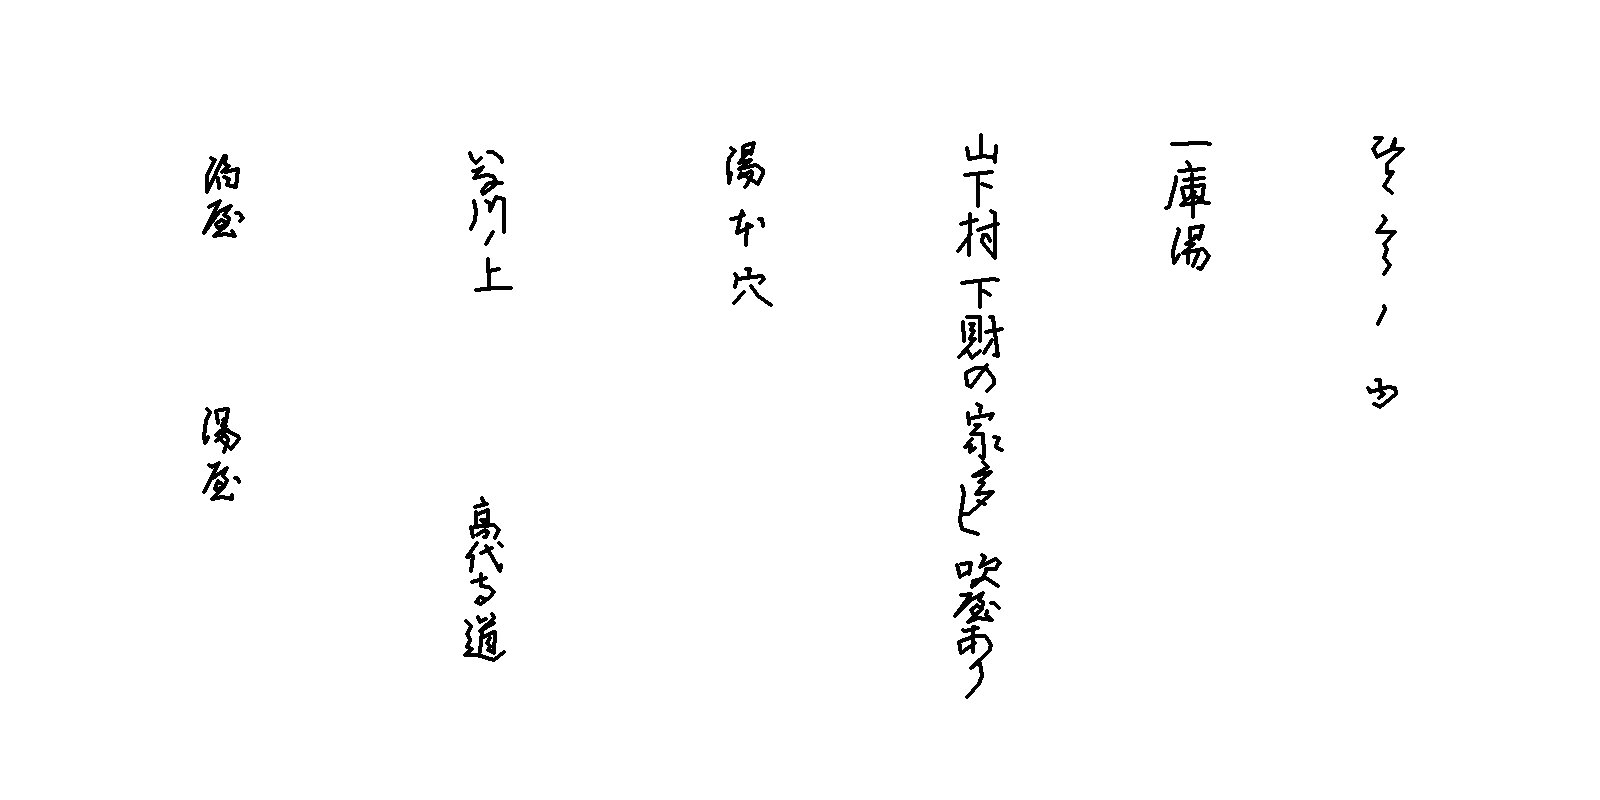 ひとくらノゆ
一庫湯
山下村下財の家多し吹屋あり
湯本穴
いな川ノ上 高代寺道
屋 湯屋